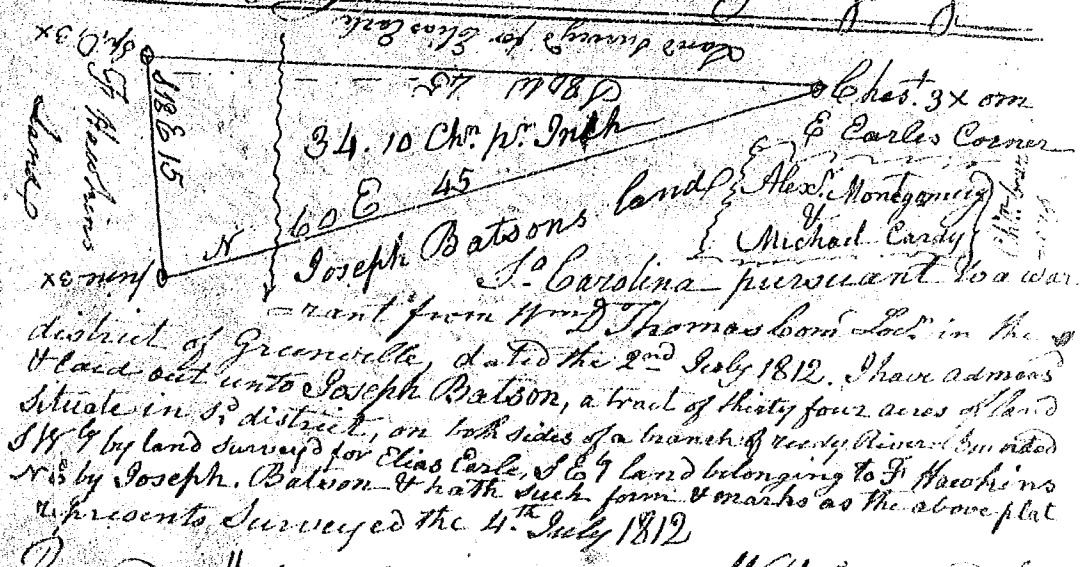 Land Surveyd for Elias Earle
Sp. O, 3x
S 80 W 45
Chest. 3x om
E Earles Corner
F Hawkins
Land
S 18 E 15
34.10 Chn. pr. Inch
N 60 E 45
Joseph Batsons land
Alexr. Montgomery
&
Michael Cardy
3x
So. Carolina pursuant to a war
-rant from Wm D Thomas Comr Locn in the
district of Greenville, dated the 2nd July 1812. I have admeasd
& laid out unto Joseph Batson, a tract of thirty four acres of land
Situate in sd. district, on both sides of a branch of reedy River bounded
S Wly by land surveyd for Elias Earle, S Ely land belonging to F Hawkins
N by Joseph. Batson & hath such form & marks as the above plat
represents Surveyed the 4th July 1812